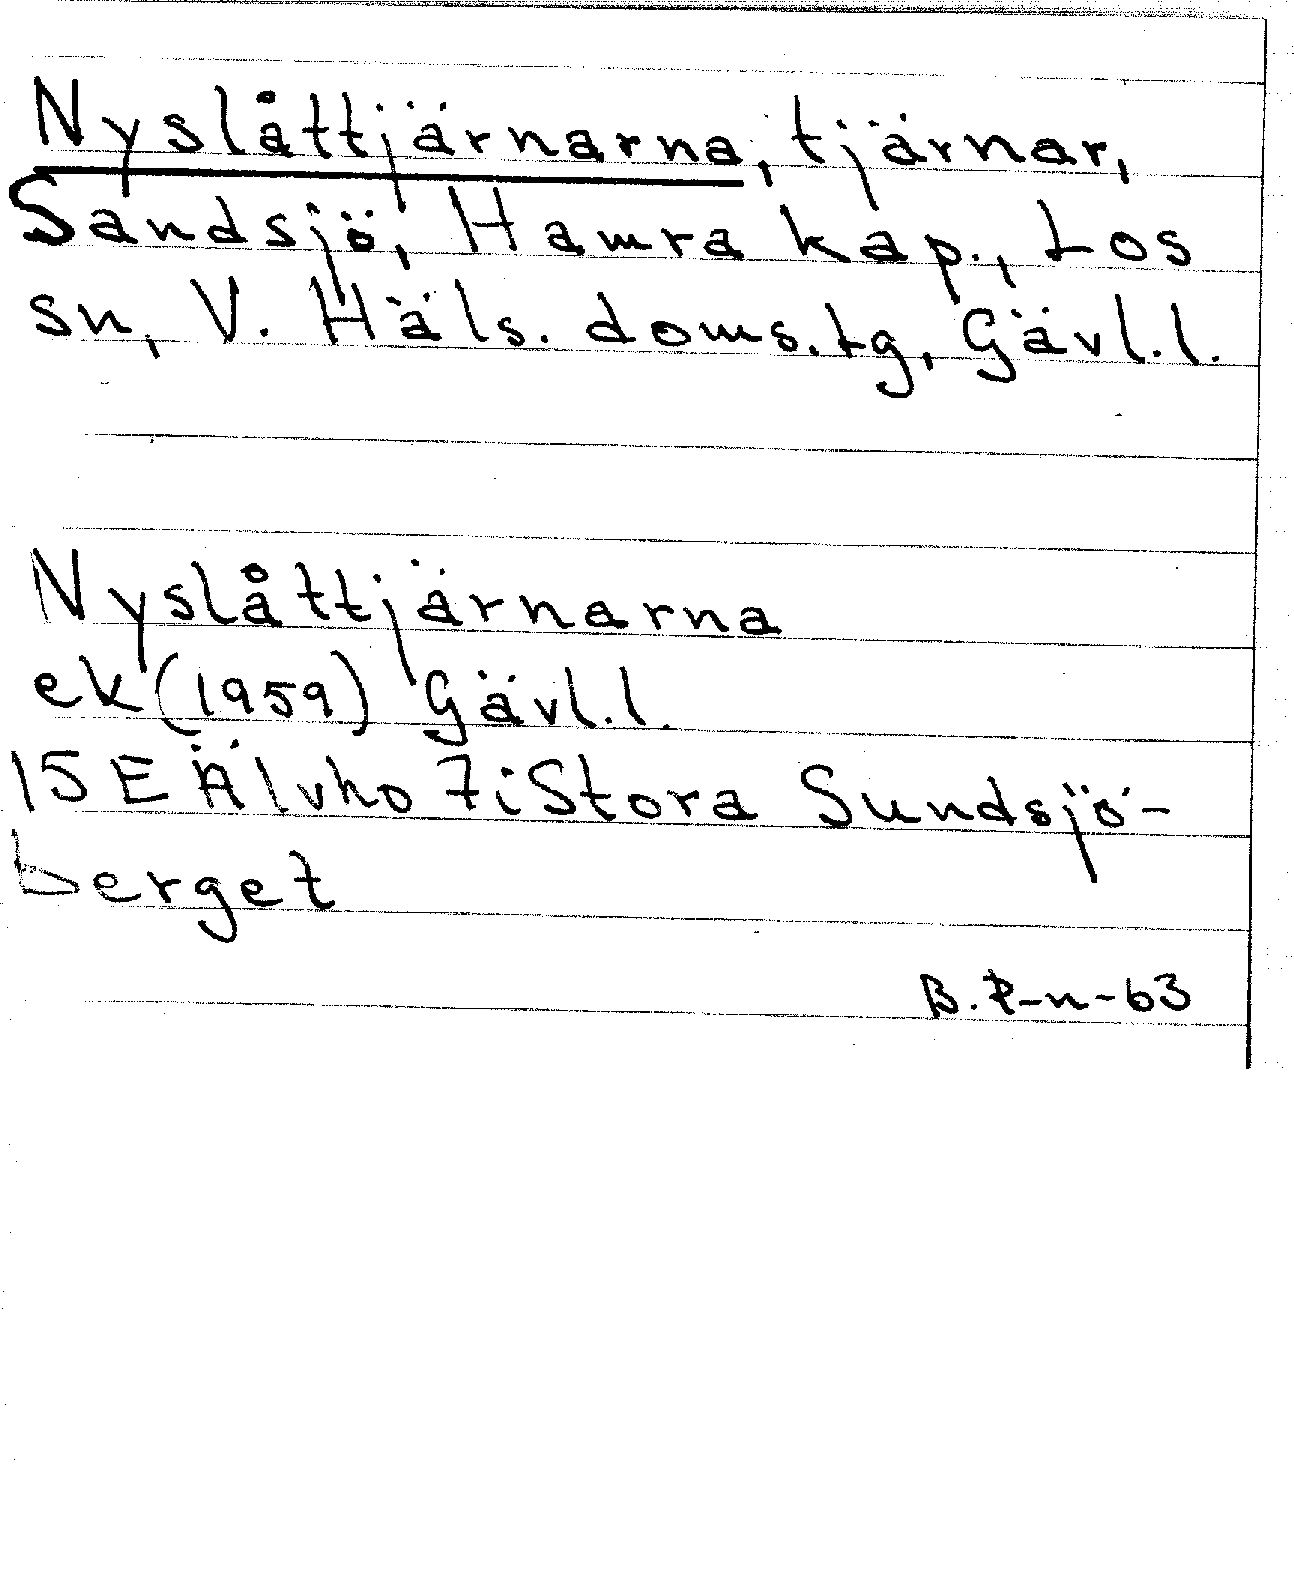 Nyslåttjärnarna, tjärnar,
Sandsjö, Hamra kap., Los
sn, V. Häls. doms.tg, Gävl.l.
Nyslåttjärnarna
ek (1959) Gävl.l.
15 E Älvho 7i Stora Sundsjö-
berget
B. P-n-63